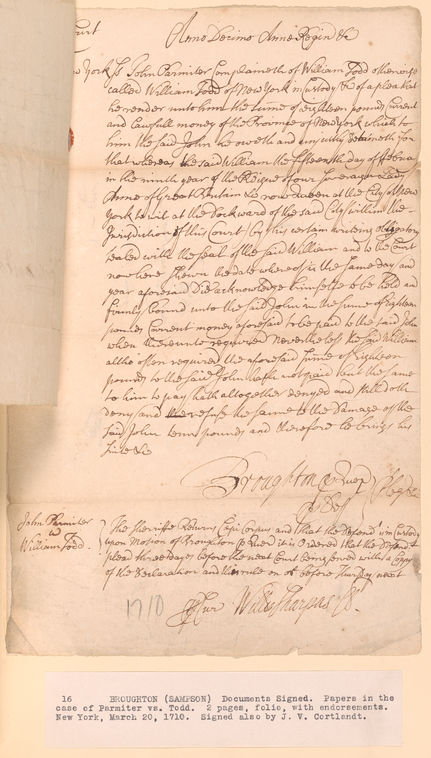 Court Anno Decimo Annæ Regin &c
New York Ss John Parmiter Complaineth of William Todd otherwise
called William Todd of New York in Custody &c of a plea that
he render unto him the sume of eighteen pounds Current
and lawfull money of the Province of New York which to
him the said John he oweth and unjustly detaineth for
that whereas the said William the fifteenth day of
in the ninth year of the Reigne of our Soveraigne Lady
Anne of Great Brittain &c now Queen at the City of New
York to wit at the Dock ward of the said City within the
Jurisdiction of this Court by his certain writing obligatory
sealed with the seal of the said William and to the Court
now here shewn the date whereof is the same day and
year aforesaid Did acknowledge himselfe to be held and
firmly bound unto the said John in the sume of Eighteen
pounds Current money aforesaid to be paid to the said John
when thereunto required Nevertheless the said William
altho often required the aforesaid sume of Eighteen
pounds to the said John hath not paid but the same
to him to pay hath altogether denyed and still doth
deny and the same to the Damage of the
said John tenn pounds and therefore he brings his
Suite &c
Broughton
John Parmiter
v
William Todd
The Sherriffe Returns Cepi Corpus and that the Defend in Custody
upon Motion of Broughton it is Ordered that the Defend
plead three dayes before the next Court being served with a Copy
of the Declaration and this rule on or before Thursday next
1710
Cur Will Sharpas Cl
16 BROUGHTON (SAMPSON) Documents Signed. Papers in the
case of Parmiter vs. Todd. 2 pages, folio, with endorsements.
New York, March 20, 1710. Signed also by J. V. Cortlandt.